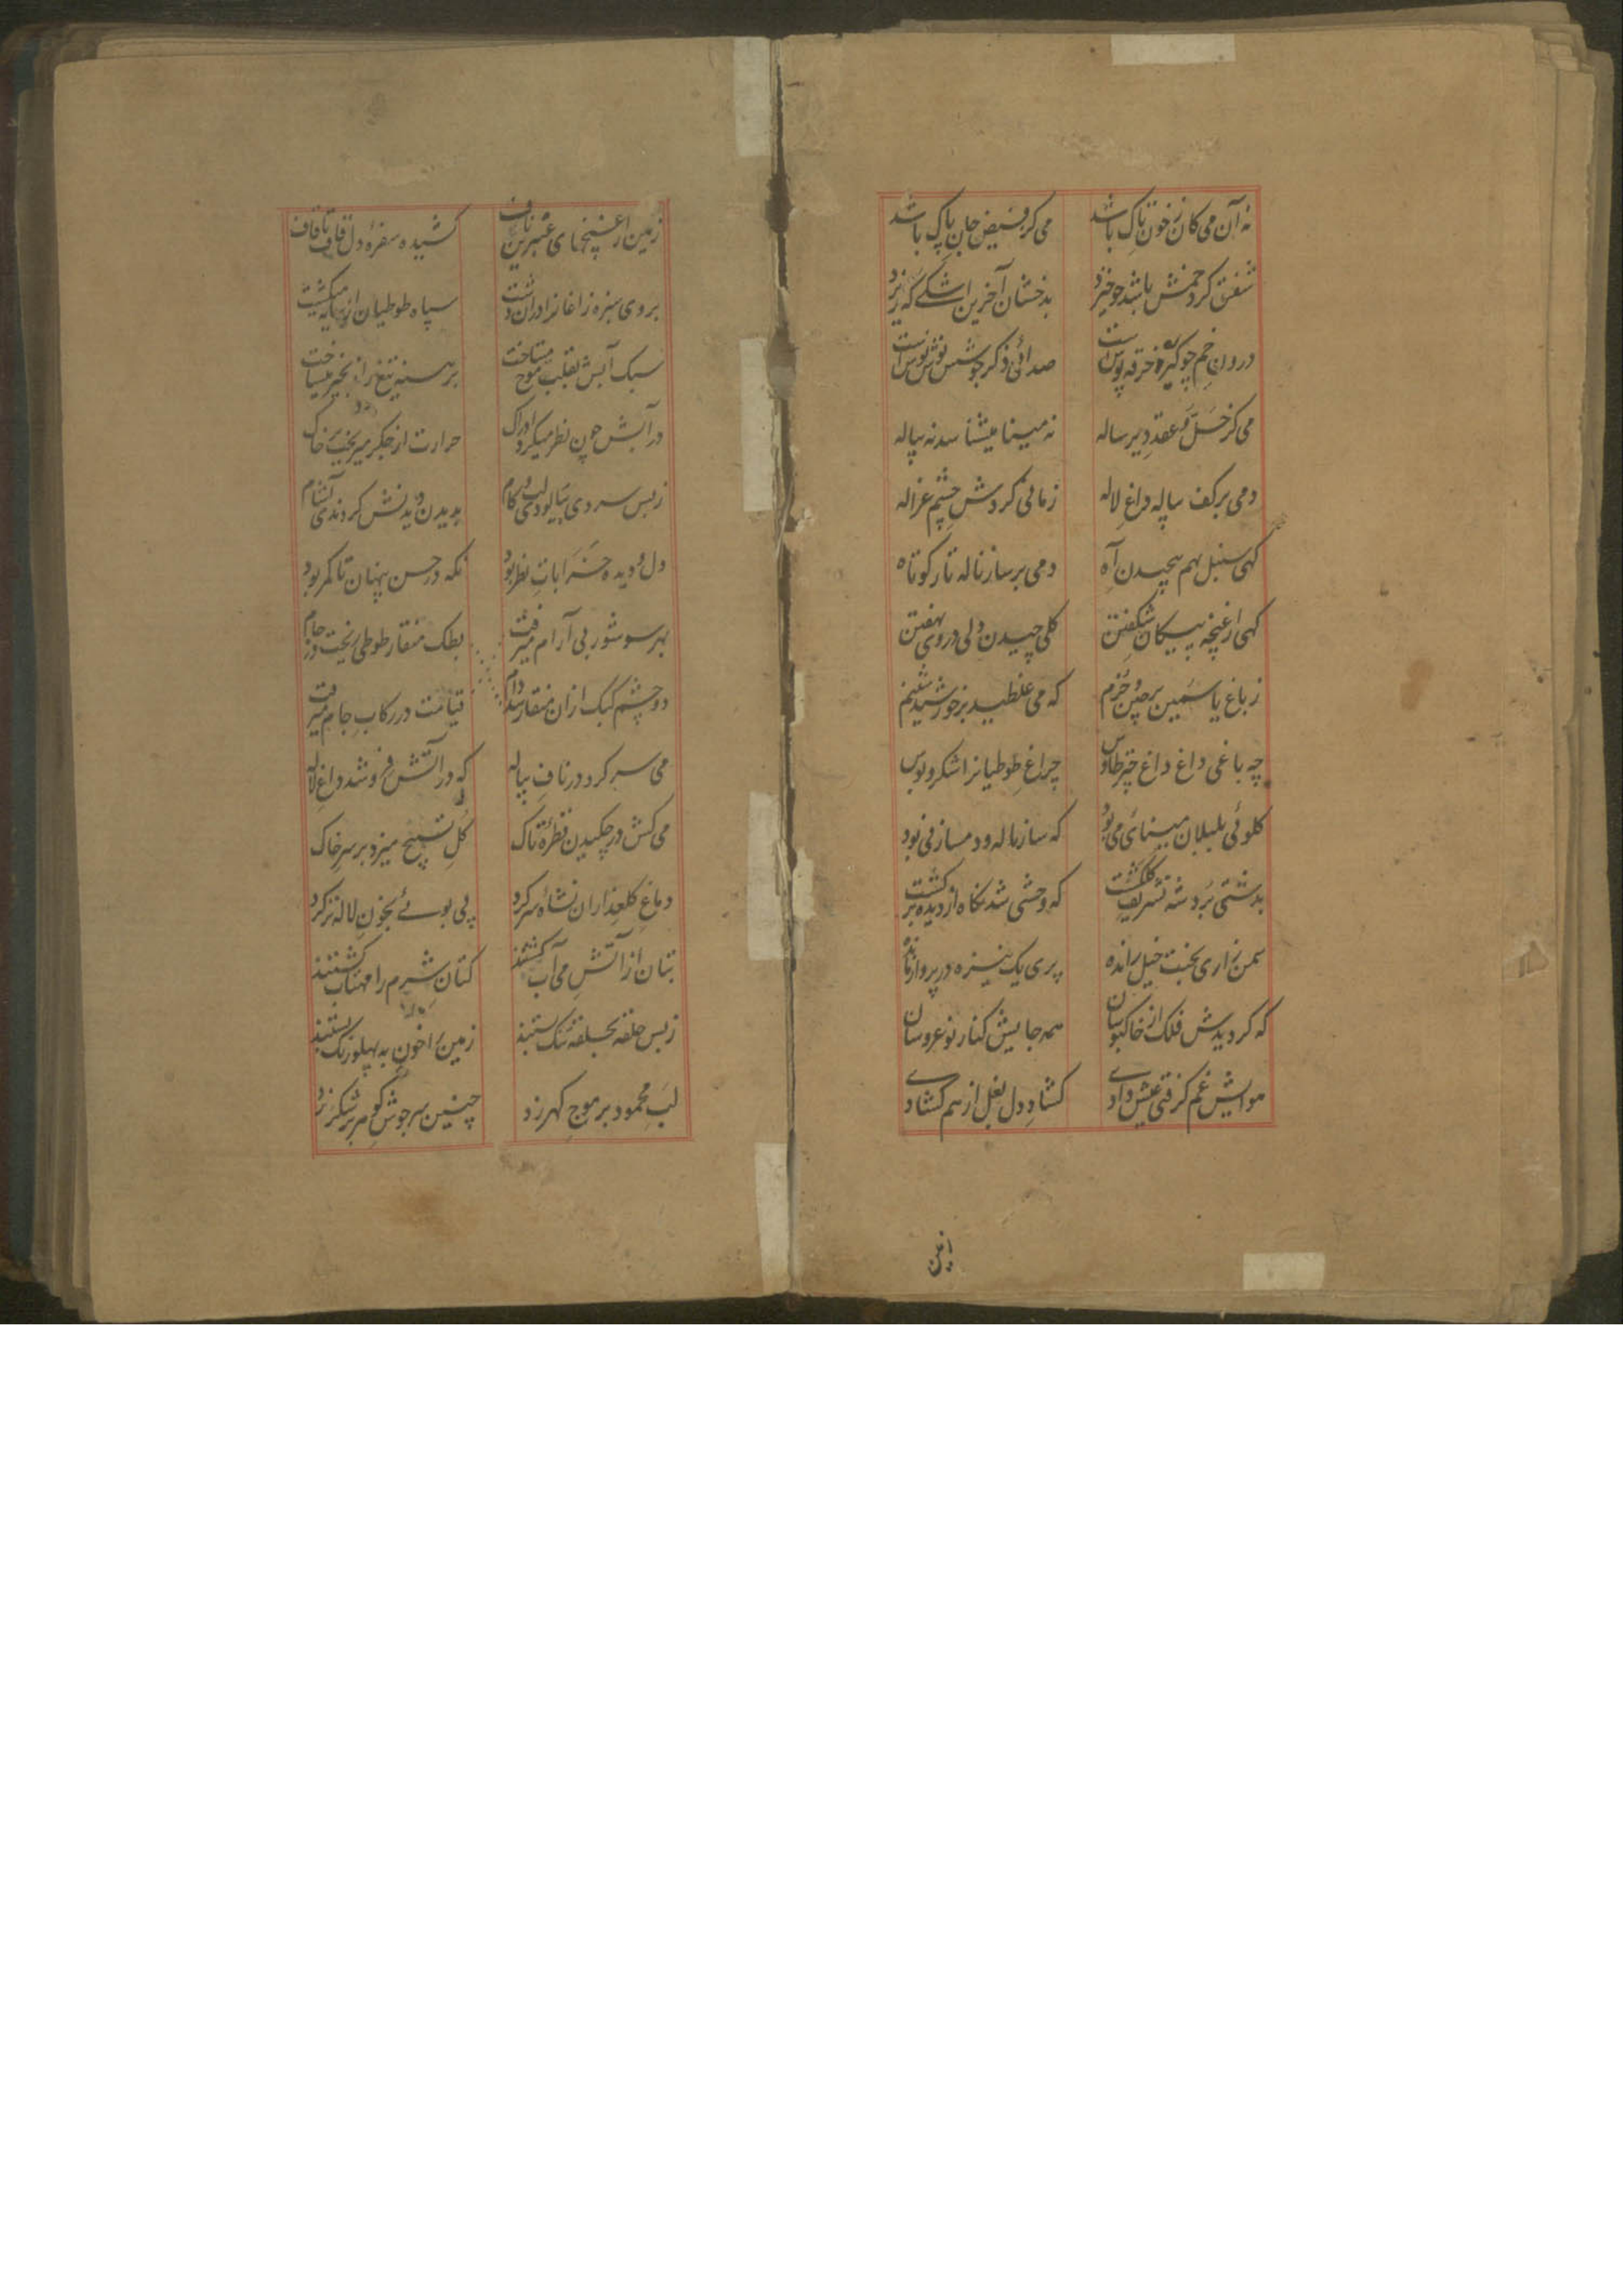 نه آن می کان ز خون تاک باشد
می کز فیض جان پاک باشد
شفق گرد خمش باشد چو خیزد
بدخشان آخرین اشکی که ریزد
درون خم چو گیرد خرقه پوش است
صدائی ذکر جوشش نوش نوش است
می کز حل و عقد دیر ساله
نه مینا میشناسد نه پیاله
دمی بر کف پیاله داغ لاله
زمانی گردش چشم غزاله
گهی سنبل بهم پیچیدن آه
دمی بر ساز ناله تار کوتاه
گهی از غنچه پیکان شکفتن
گلی چیدن ولی در روی نهفتن
ز باغ یاسمین پر چین و خرم
که می غلطید بر خورشید شبنم
چه باغی داغ داغ چتر طاوس
چراغ طوطیانرا شکر و بوس
گلوئی بلبلان مینائی می بود
که ساز ناله و دمساز نی بود
بدشتی برد شه تشریف گلگشت
که وحشی شد نگاه از دیده برگشت
سمن زاری بخت خیل رانده
پری یک نیزه در پرواز مانده
که گردیدش فلک از خاکبوسان
همه جایش کنار نو عروسان
هوایش غم گرفتی عیش دادی
گشاد دل بغل از هم گشادی
زمین
زمین از غنچهای عنبرین ناف
کشیده سفرهٔ دل قاف تا قاف
بروی سبزه زاغانرا
سپاه طوطیان از سایه میگشت
سبک آبش بقلب موج میتاخت
برهنه تیغ را زنجیر میساخت
در آبش چون نظر میکرد ادراک
حرارت از جگر میریخت بر خاک
ز بس سردی لب و کام
بدیدن دیدنش کردندی آشام
دل و دیده خرابات نظر بود
نگه در حسن پنهان تا کمر بود
بهر سو شور بی آرام میرفت
بطک منقار طوطی ریخت در جام
دو چشم کبک ازان منقار شد دام
قیامت در رکاب جام میرفت
می سر کرد در ناف پیاله
که در آتش فرو شد داغ لاله
می کش در چکیدن قطرهٔ تاک
گل تسبیح میزد بر سر خاک
دماغ گلعذاران نشاه سر کرد
پی بوئے بخون لاله تر کرد
بتان از آتش می آب گشتند
کتان شرم را مهتاب گشتند
ز بس حلقه بحلقه تنگ بستند
زمین را خون به پهلو رنگ بستند
لب محمود بر موج گهر زد
چنین سرجوش گوهر بر شکر زد